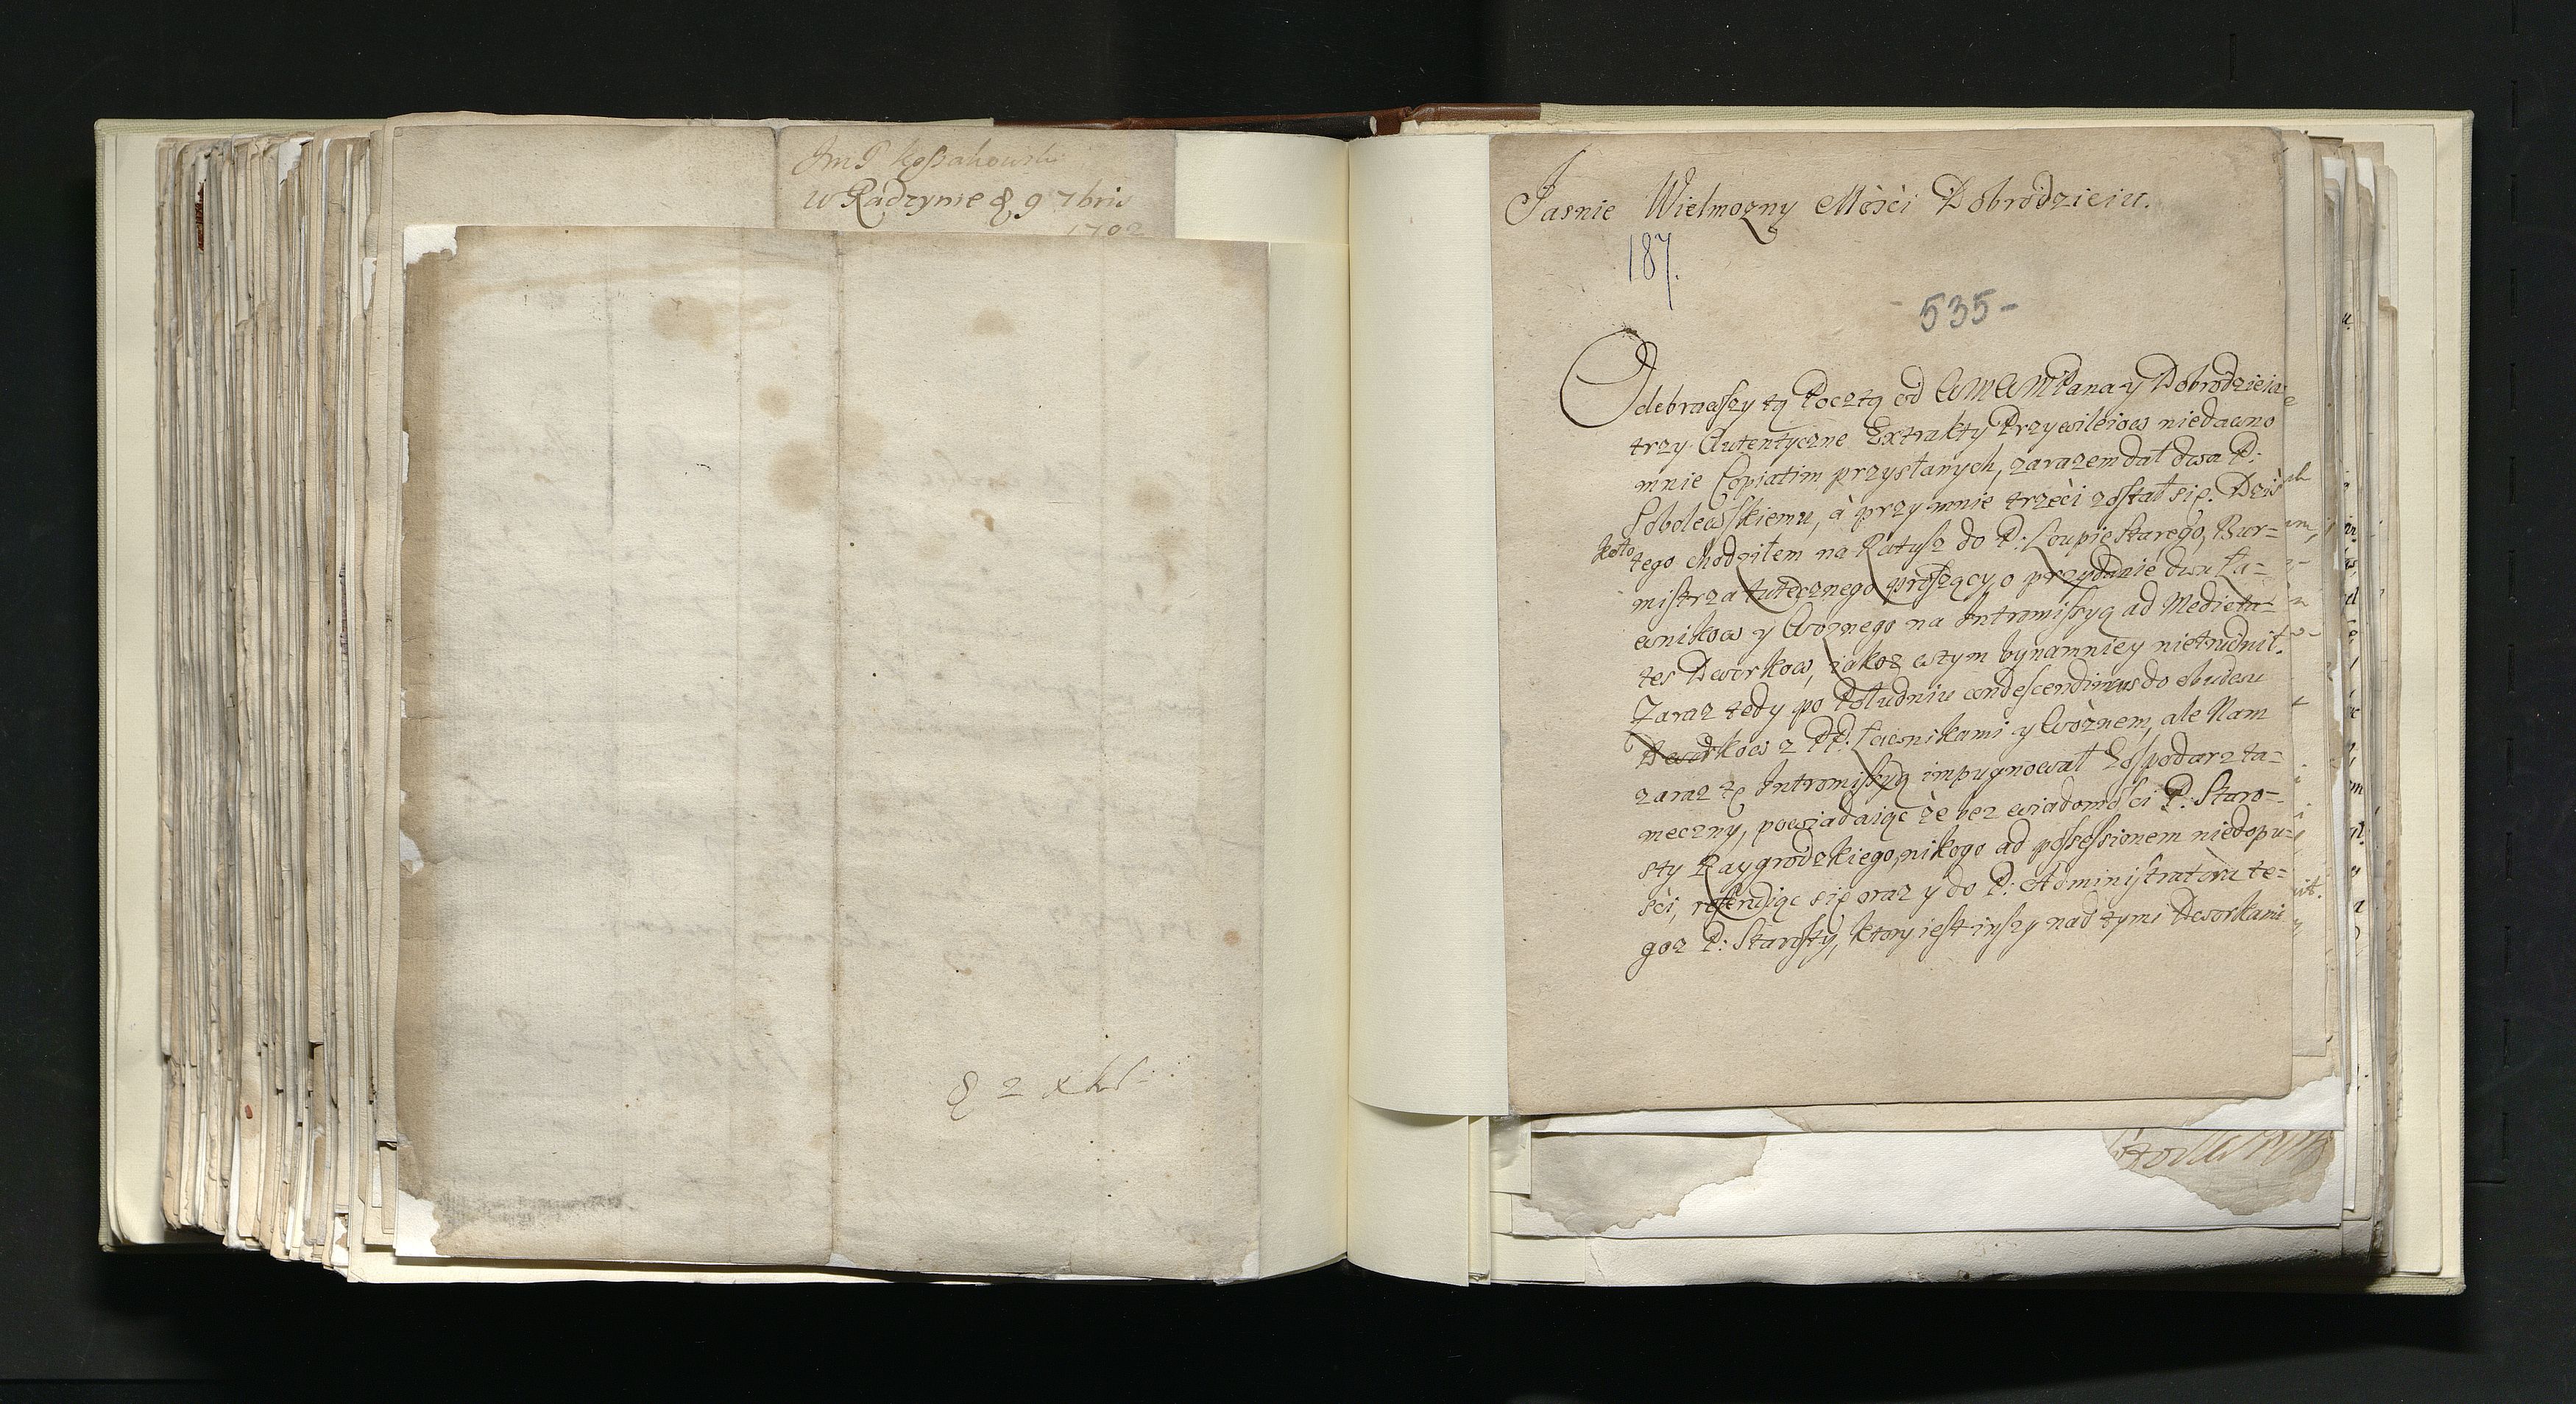 JmP Kossakowski
w Radzynie d 9 7bris
1702
d 2 xbr
Jasnie Wielmozny Mości Dobrodzieiu.
187.
- 535 -
Odebrawszy tą Pocztą od WMWMPana y Dobrodzieia
trzy Autentyczne Extrakty Przywileiow niedawno
mnie Copiatim przysłanych, zarazem dał dwa P:
Sobolewskiemu, à przy mnie trzeci został się. Dziś
koło tego chodziłem na Ratusz do P: Loupie Starego, Bur=
mistrza tutecznego prosząc, o przydanie dwu Ła=
wnikow y Woznego na Intromissyą ad Medieta=
tes Dworkow, iakoz wtym bynamniey nietrudnił.
Zaraz tedy po Południu condescendimus do obudwu
Dworkow z PP. Ławnikami y Woźnem, ale Nam
zaraz tę Intromissyą impugnował Gospodarz ta=
meczny, powiadaiąc że bez wiadomości P: Staro=
sty Raygrodzkiego, nikogo ad possessionem niedopu=
ści, referuiąc się oraz y do P: Administratora te=
goz P: Starosty, ktory iest inszy nad tymi Dworkami